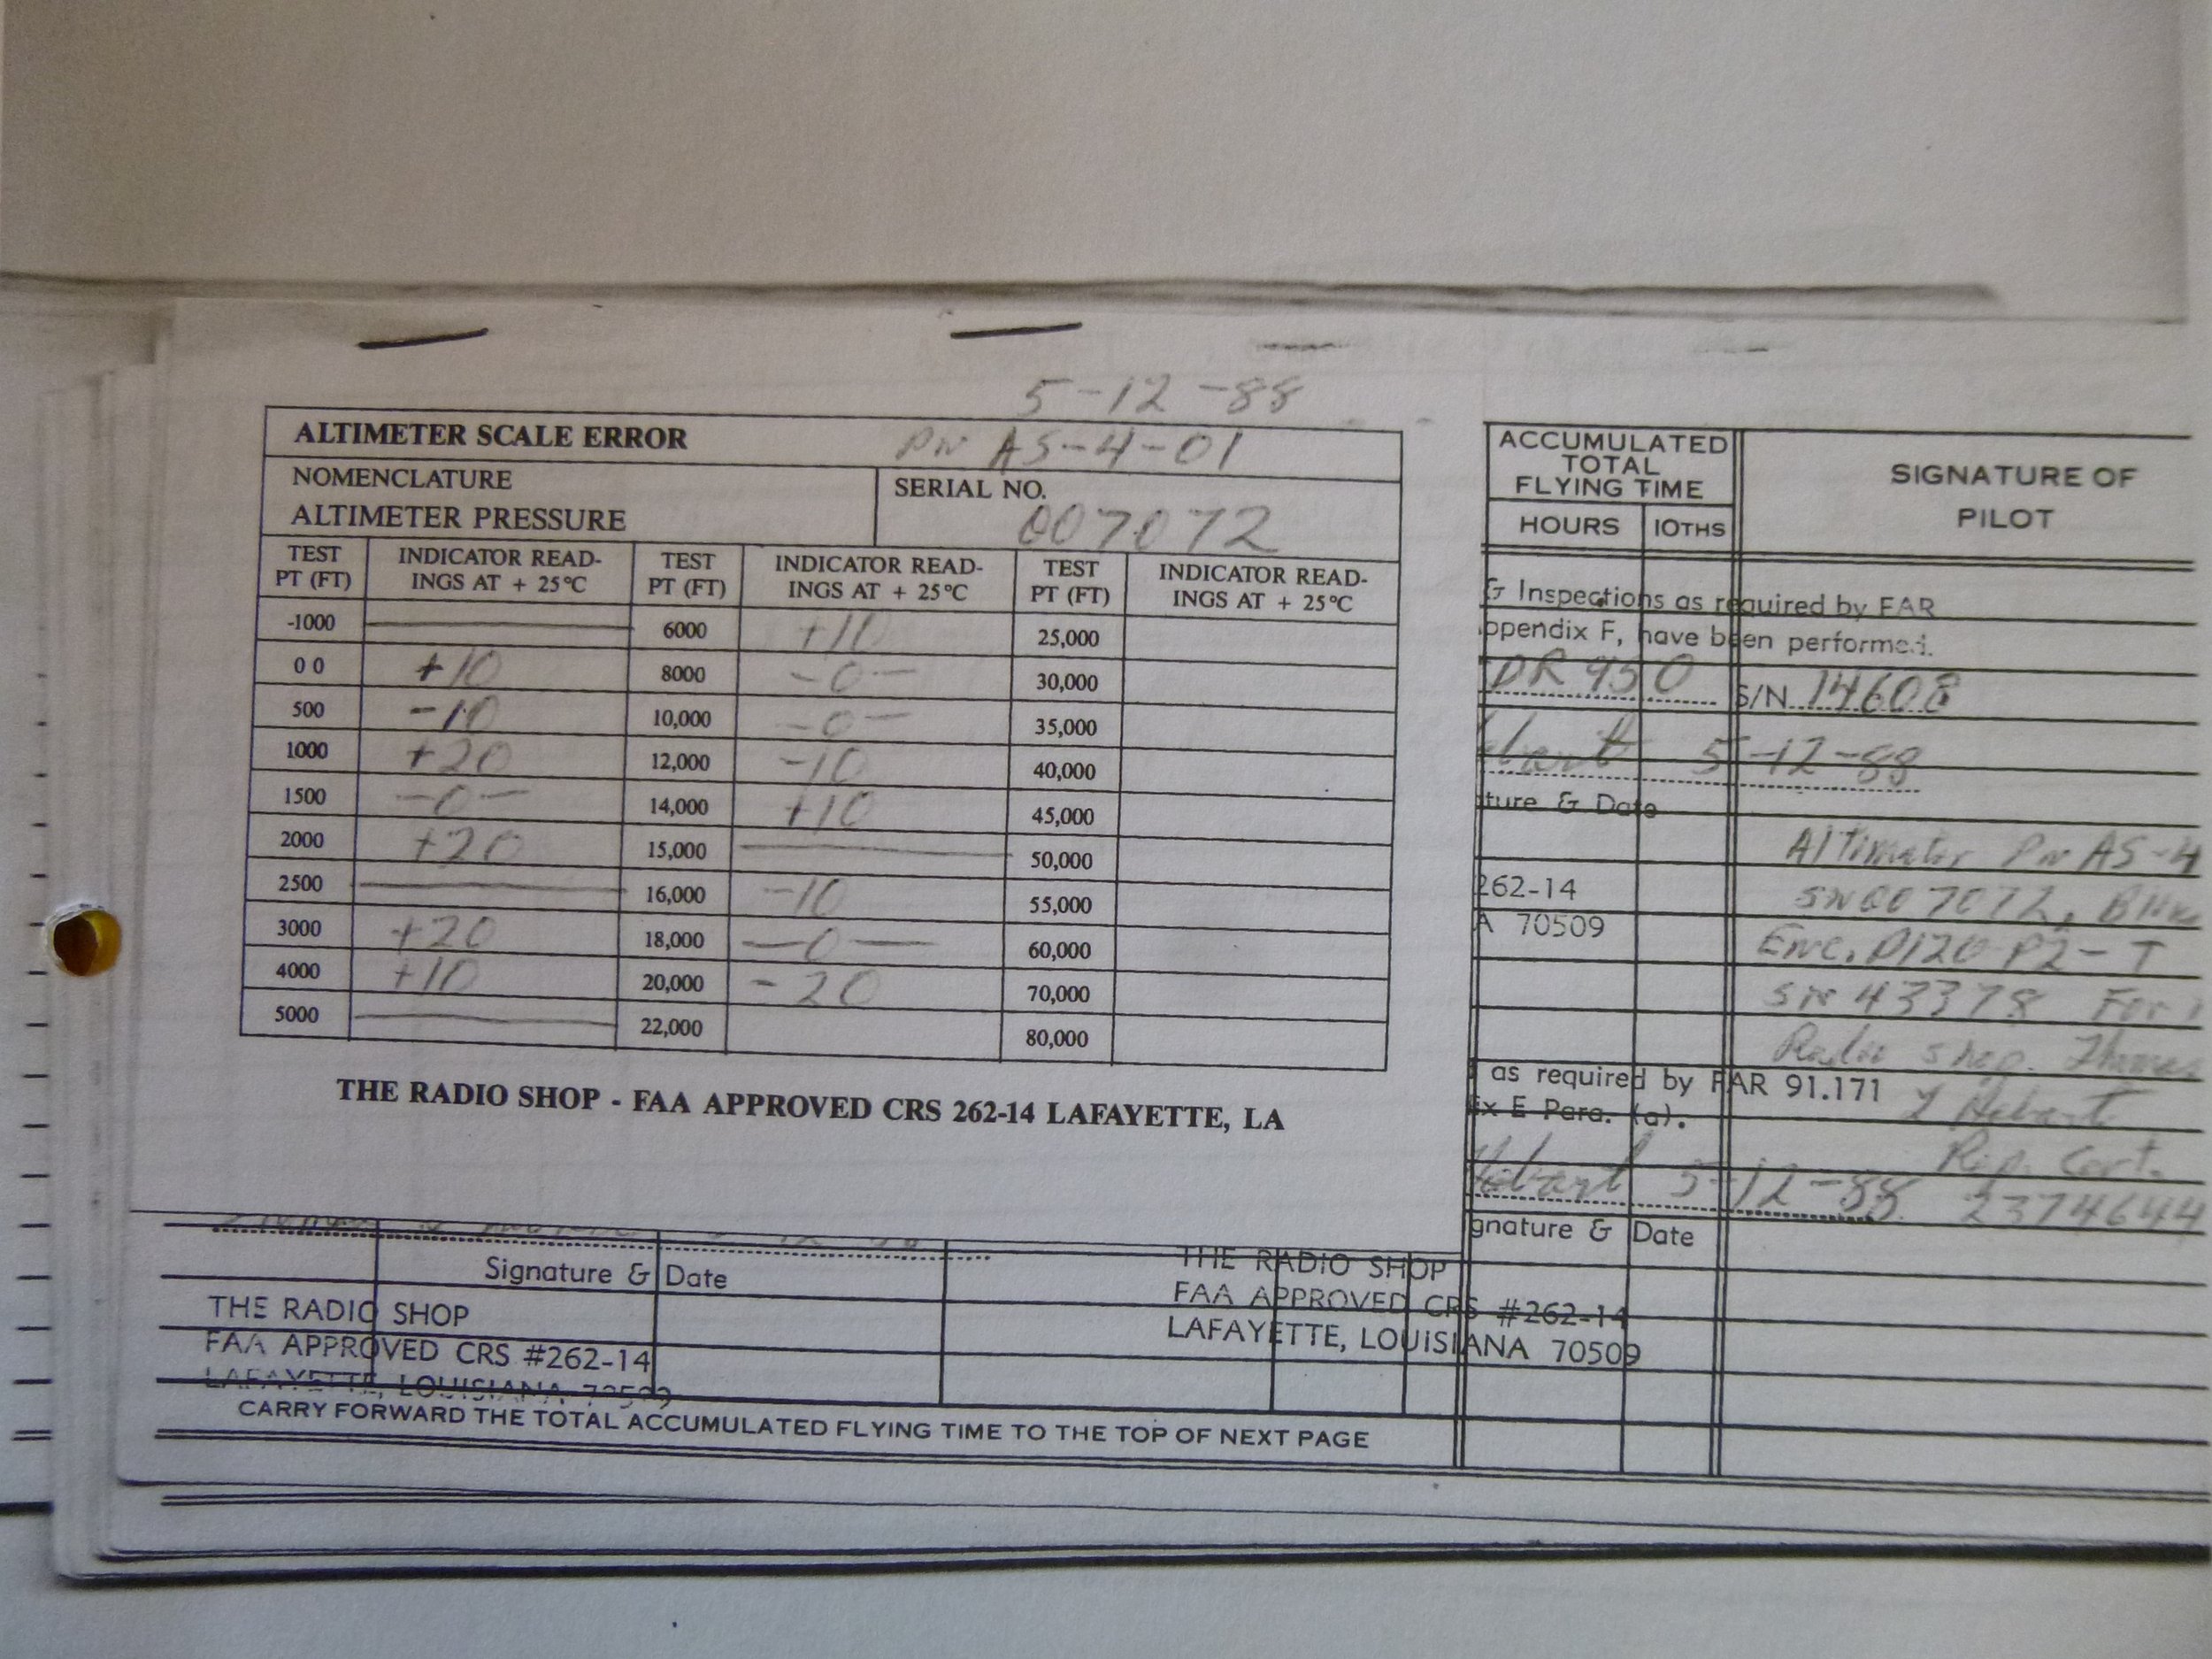 5-12-88
ALTIMETER SCALE ERROR PN AS-4-01
NOMENCLATURE
ALTIMETER PRESSURE
SERIAL NO.
007072
TEST PT (FT) INDICATOR READ-INGS AT + 25°C TEST PT (FT) INDICATOR READ-INGS AT + 25°C TEST PT (FT) INDICATOR READ-INGS AT + 25°C
-1000 6000 +10 25,000
0 0 +10 8000 -0- 30,000
500 -10 10,000 -0- 35,000
1000 +20 12,000 -10 40,000
1500 -0- 14,000 +10 45,000
2000 +20 15,000 50,000
2500 16,000 -10 55,000
3000 +20 18,000 -0- 60,000
4000 +10 20,000 -20 70,000
5000 22,000 80,000
THE RADIO SHOP - FAA APPROVED CRS 262-14 LAFAYETTE, LA
Signature & Date
THE RADIO SHOP
FAA APPROVED CRS #262-14
LAFAYETTE, LOUISIANA 70509
THE RADIO SHOP
FAA APPROVED CRS #262-14
LAFAYETTE, LOUISIANA 70509
CARRY FORWARD THE TOTAL ACCUMULATED FLYING TIME TO THE TOP OF NEXT PAGE
ACCUMULATED
TOTAL
FLYING TIME
HOURS 10THS
SIGNATURE OF
PILOT
& Inspections as required by FAR
ppendix F, have been performed.
DR 950 S/N 14608
5-12-88
ture & Date
262-14
A 70509
Altimeter PN AS-4
SN 007072,
Enc. D120-P2-T
SN 43378 For
Radio Shop.
as required by FAR 91.171
ex E Para. (a).
Y Hebart
Rep. Cert.
2374644
Hebart 5-12-88
gnature & Date